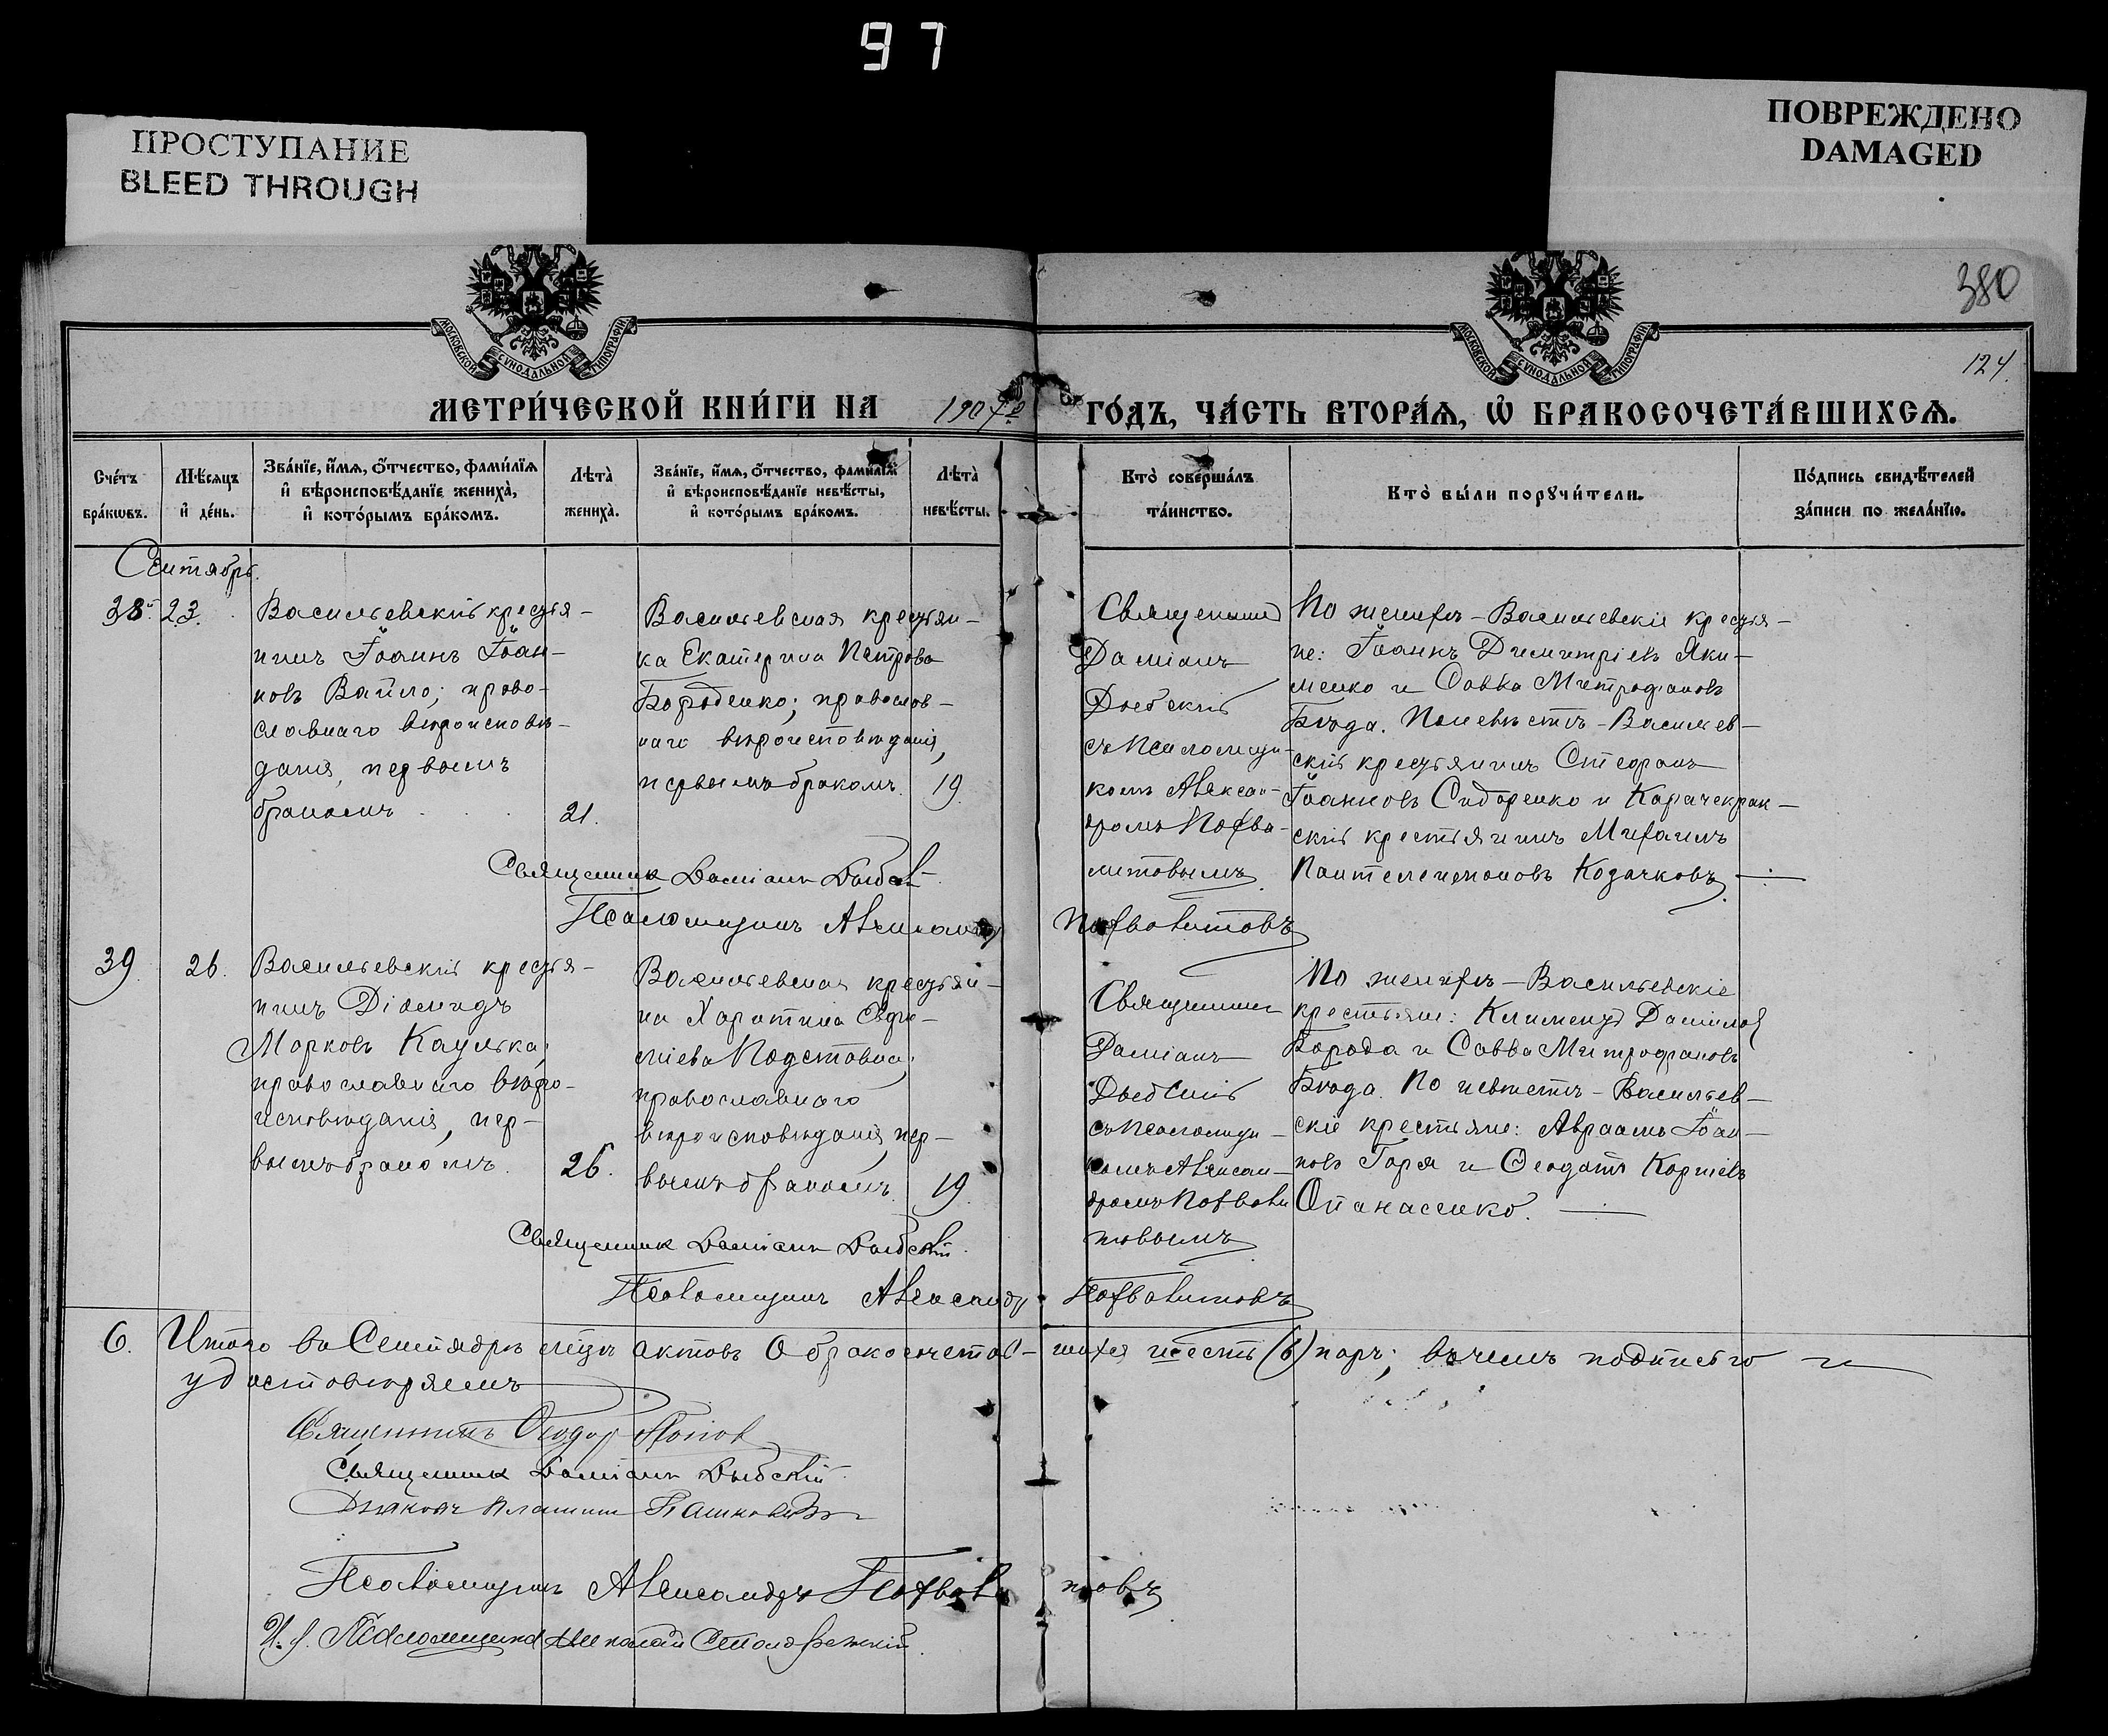 97
ПРОСТУПАНИЕ
BLEED THROUGH
ПОВРЕЖДЕНО
DAMAGED
380
124.
МОСКОВСКОЙ СѴНОДАЛЬНОЙ ТИПОГРАФІИ
МОСКОВСКОЙ СѴНОДАЛЬНОЙ ТИПОГРАФІИ
МЕТРИ́ЧЕСКОЙ КНИ́ГИ НА 1907 ГО́ДЪ, ЧА́СТЬ ВТОРА́Я, Ѡ БРАКОСОЧЕТА́ВШИХСЯ.
Сче́тъ
бра́кωвъ.
Мѣ́сяцъ
и де́нь.
Зва́нїе, и́мя, ѻ́тчество, фами́лїя
и вѣроисповѣ́данїе жениха̀,
и кото́рымъ бра́комъ.
Лѣта̀
жениха̀.
Зва́нїе, и́мя, ѻ́тчество, фами́лїя
и вѣроисповѣ́данїе невѣ́сты,
и кото́рымъ бра́комъ.
Лѣта̀
невѣ́сты.
Кто̀ соверша́лъ
та́инство.
Кто̀ бы́ли порꙋчи́тели.
По́дпись свидѣ́телей
за́писи по жела́нїю.
Сентябрь.
38. 23.
Васильевскій крестья-
нинъ Іоаннъ Іоан-
новъ Вайло; право-
славнаго вѣроисповѣ-
данія, первымъ
бракомъ
21.
Васильевская крестьян-
ка Екатерина Петрова
Бороденко; православ-
наго вѣроисповѣданія,
первымъ бракомъ.
19.
Священникъ
Даміанъ
съ Псаломщи-
комъ Алексан-
дромъ Похва-
литовымъ
По женихѣ - Васильевскіе крестья-
не: Іоаннъ Димитріевъ Яки-
менко и Савва Митрофановъ
По невѣстѣ - Васильев-
скій крестьянинъ Стефанъ
Іоанновъ Сидоренко и Карачекрак-
скій крестьянинъ Михаилъ
Пантелеимоновъ Козачковъ.
Священникъ Даміанъ
Псаломщикъ Александръ Похвалитовъ
39 26.
Васильевскій крестья-
нинъ Діомидъ
Марковъ Каулька;
православнаго вѣро-
исповѣданія, пер-
вымъ бракомъ.
26.
Васильевская крестьян-
ка Харитина Евфи-
міева Подставка;
православнаго
вѣроисповѣданія, пер-
вымъ бракомъ.
19.
Священникъ
Даміанъ
съ Псаломщи-
комъ Алексан-
дромъ Похвали
товымъ
По женихѣ - Васильевскіе
крестьяне: Климентъ Даніиловъ
Борода и Савва Митрофановъ
По невѣстѣ - Васильев-
скіе крестьяне: Авраамъ Іоан-
новъ Горя и Ѳеодотъ Корнiевъ
Опанасенко.
Священникъ Даміанъ
Псаломщикъ Александръ Похвалитовъ
6. Итого въ Сентябрѣ м-цѣ актовъ о бракосочетав-шихся шесть (6) паръ; въ чемъ подписью и
удостовѣряемъ
Священникъ Ѳеодоръ Поповъ
Священникъ Даміанъ
Діаконъ
Псаломщикъ Александръ Похвалитовъ
И. д. Псаломщика Николай